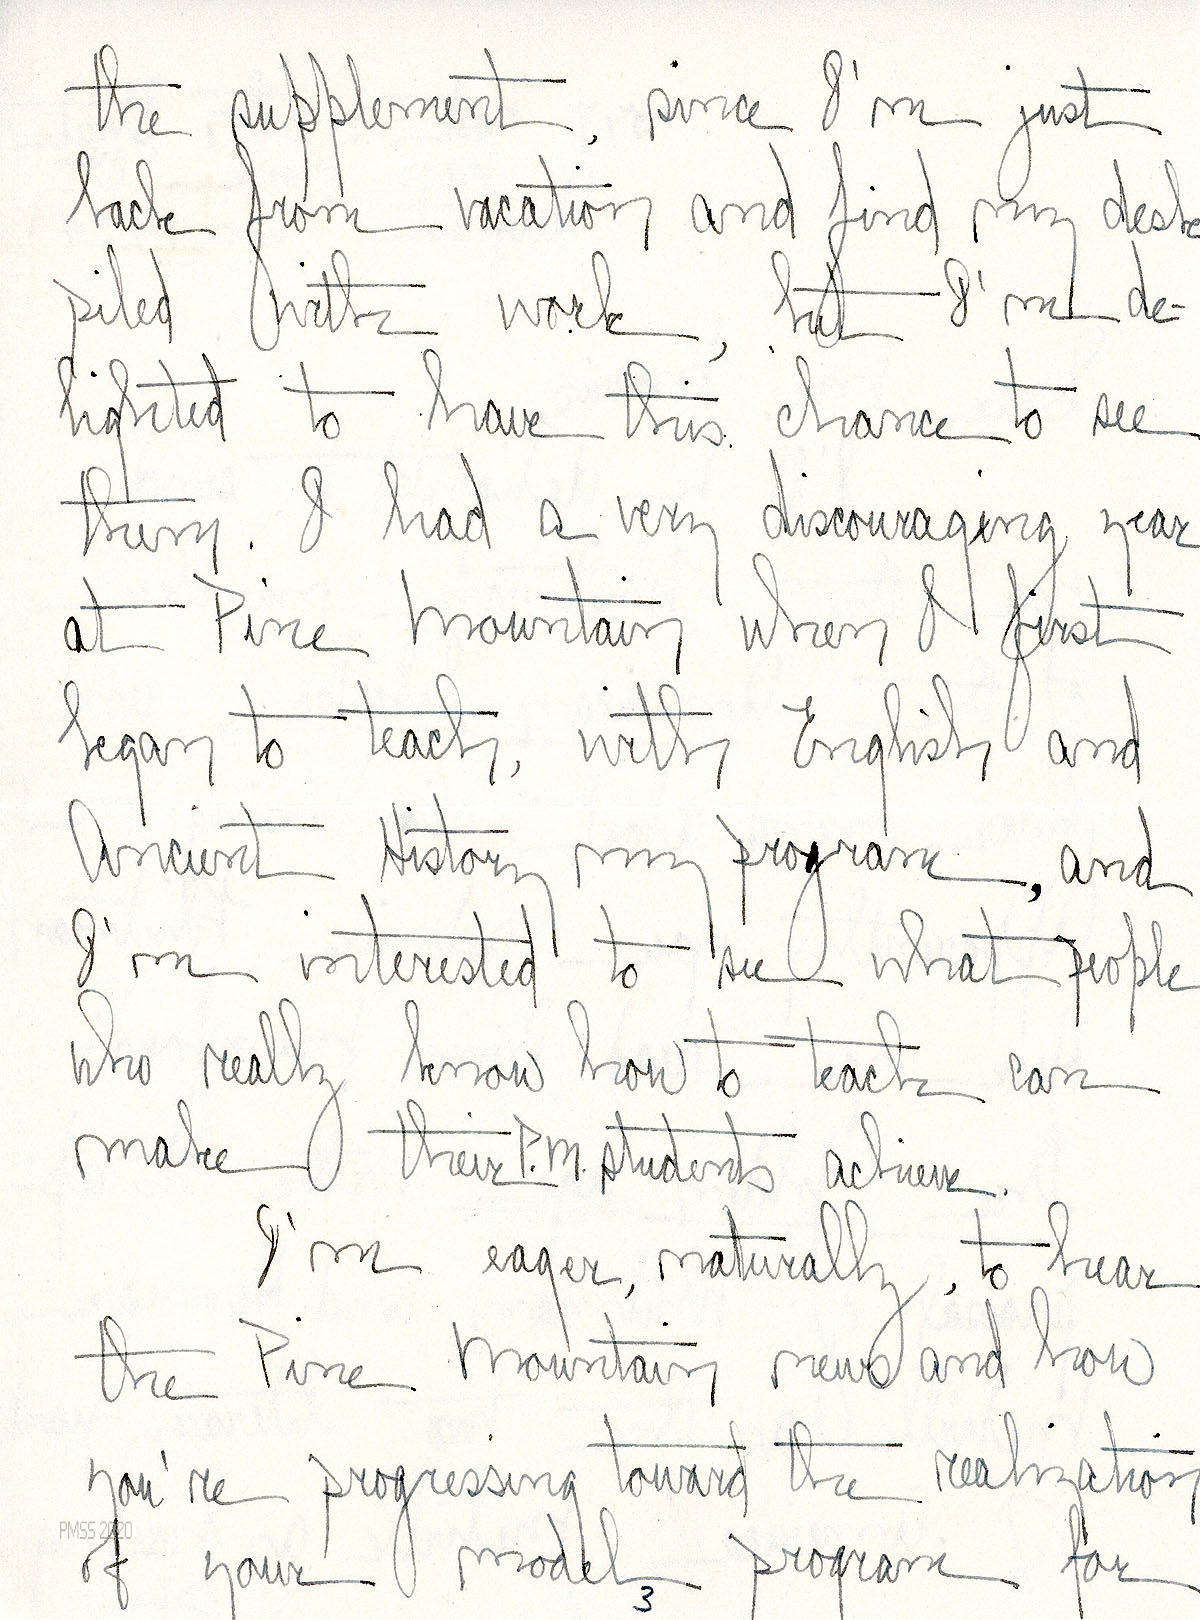 the supplement, since I'm just
back from vacation and find my desk
piled with work, but I'm de-
lighted to have this chance to see
them. I had a very discouraging year
at Pine Mountain when I first
began to teach, with English and
Ancient History my program, and
I'm interested to see what people
who really know how to teach can
make their P.M. students achieve.
I'm eager, naturally, to hear
the Pine Mountain news and how
you're progressing toward the realization
PMSS 2020
of your model program for
3